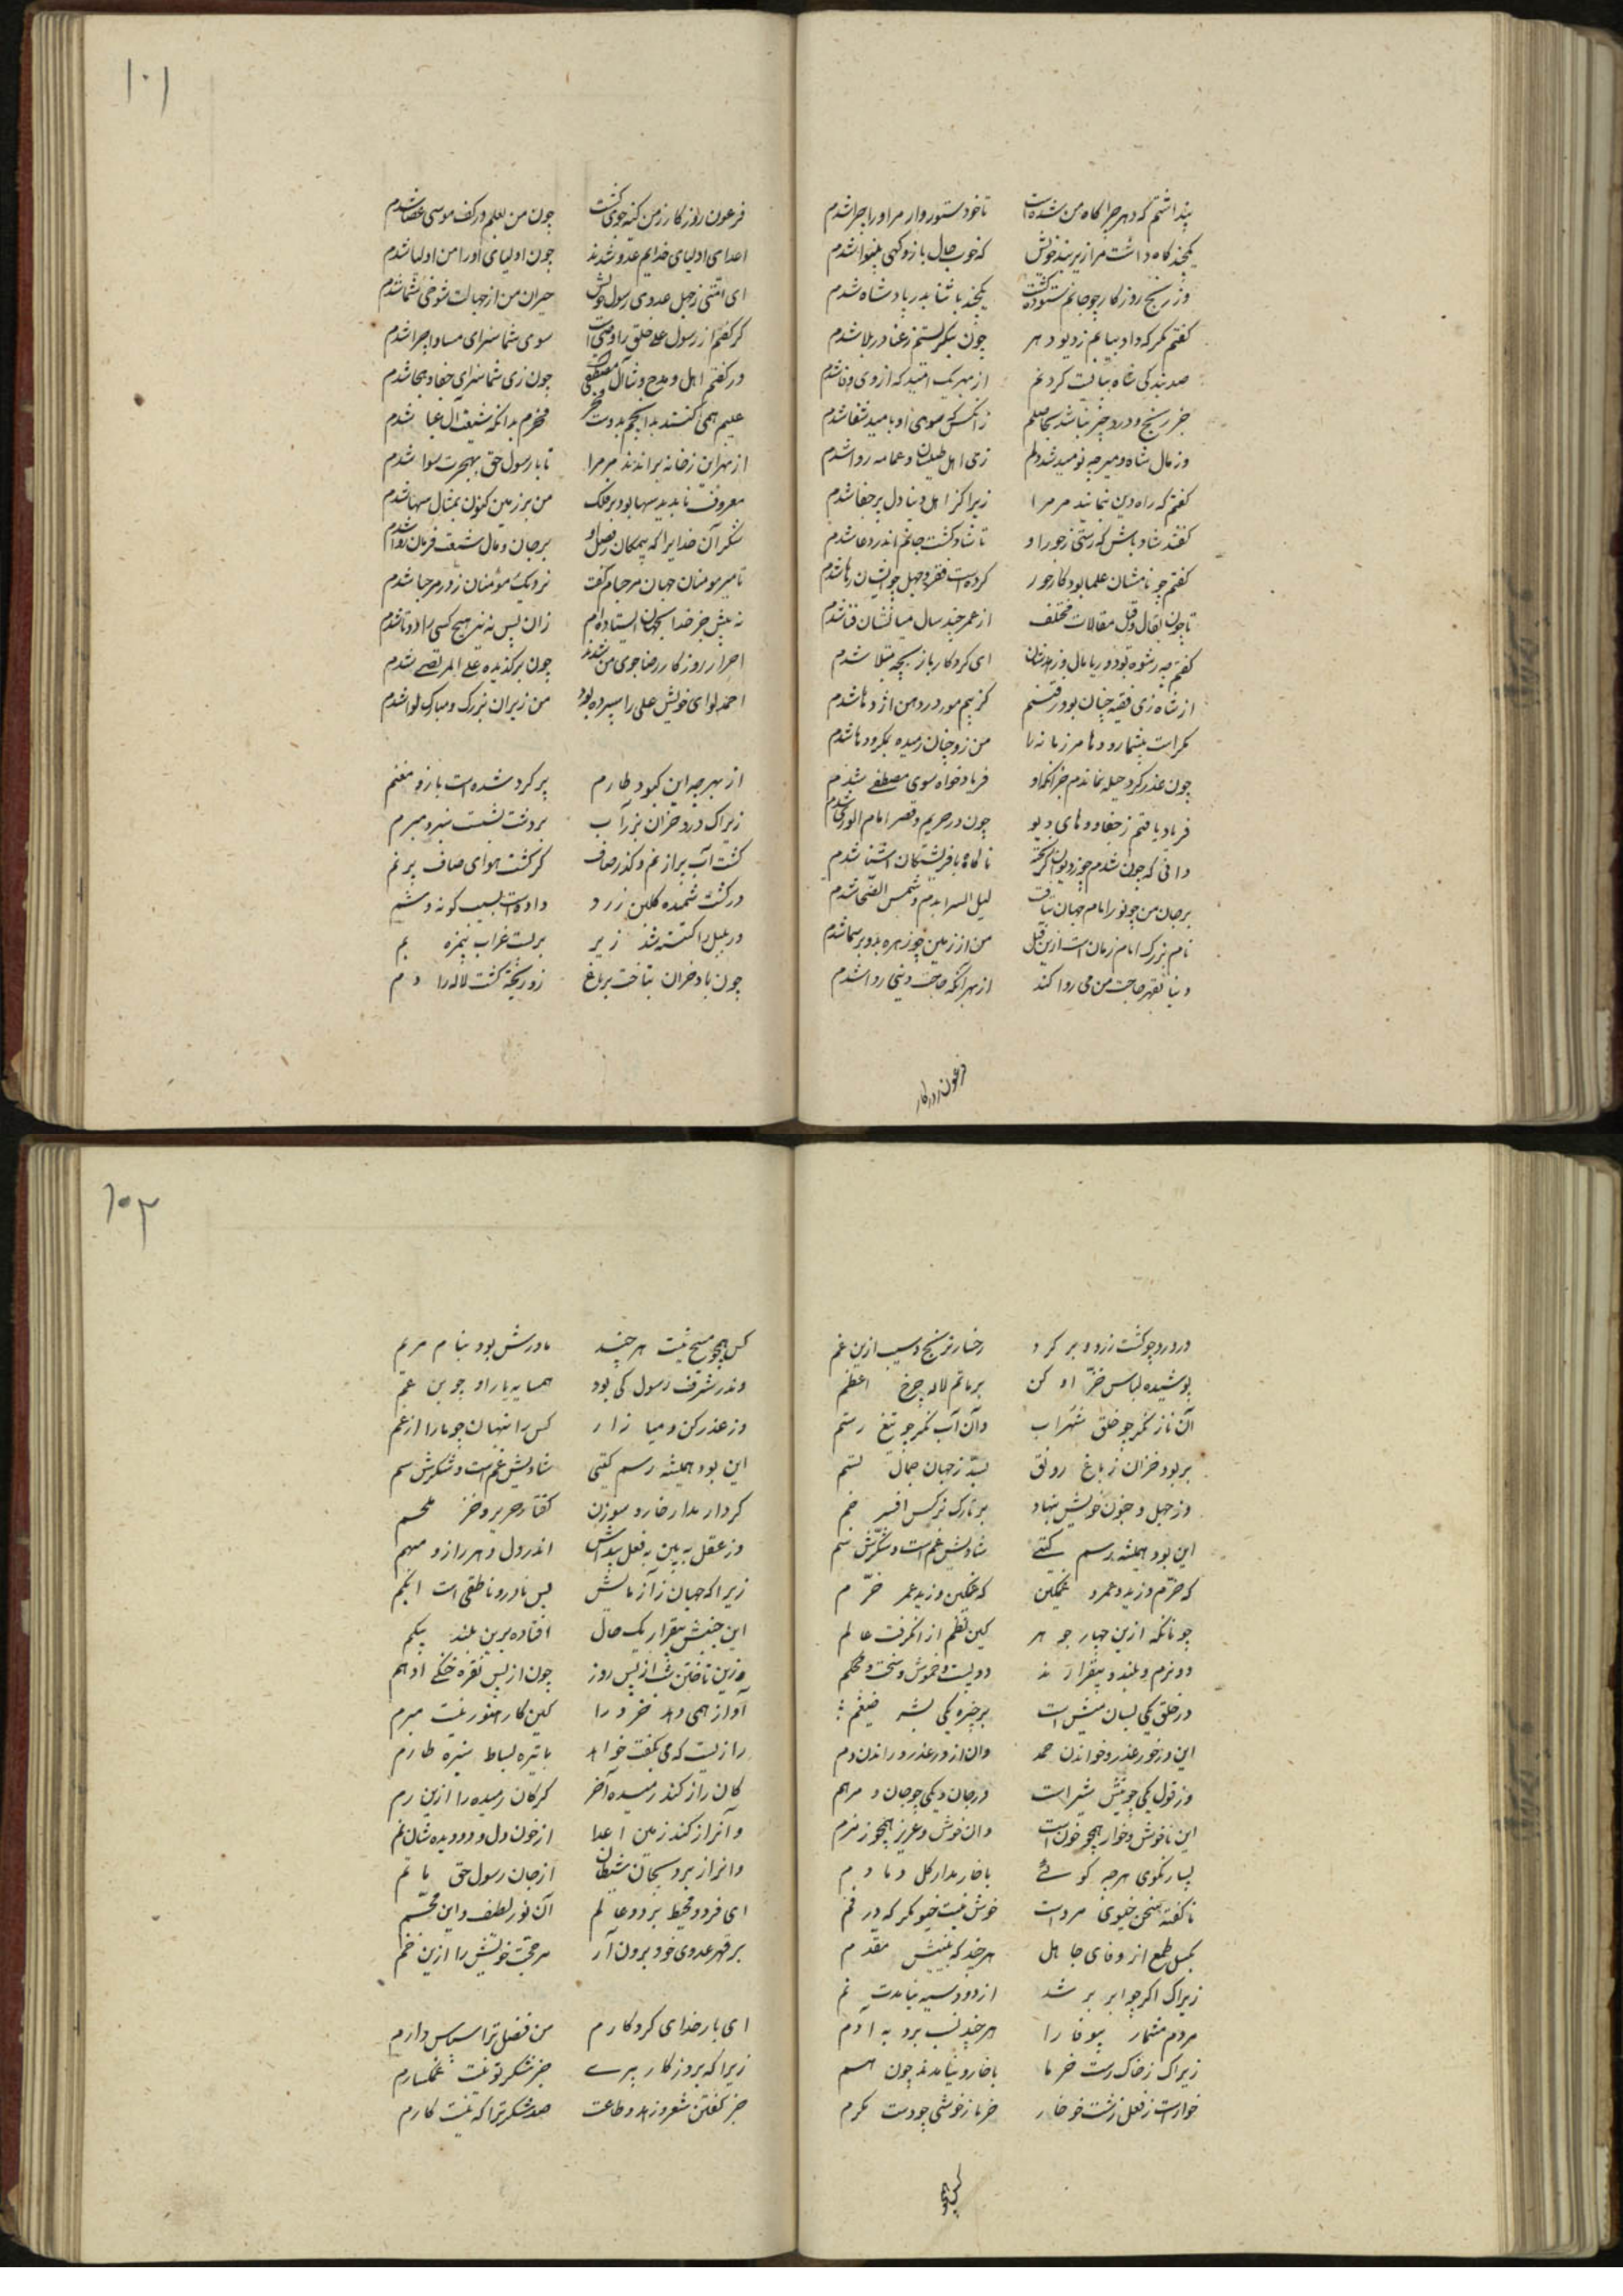 پنداشتم که دهر چراگاه من شده است تا خود ستوروار مر او را چرا شدم
یکچند گاه داشت مرا زیر بند خویش که خوب حال باز و گهی بینوا شدم
وز رنج روزگار چو جانم ستوده گشت یکچند با ثنا بدر پادشا شدم
گفتم مگر که داد بیابم ز دیو دهر چون بنگرستم ز عنا در بلا شدم
صد بندگی شاه ببایست کردنم از بهر یک امید که از وی وفا شدم
جز رنج و درد چیز نباشد بحاصلم زانکس که سوی او بامید شفا شدم
وز مال شاه و میر چو نومید شد دلم زی اهل طیلسان و عمامه و ردا شدم
گفتم که راه دین بنمایند مر مرا زیرا که ز اهل دنیا دل پر جفا شدم
گفتند شاد باش که رستی ز جور او تا شاد گشت جانم اندر دعا شدم
گفتم چو نامشان علما بود و کار جور کرده است فقر و جهل چو ایشان رها شدم
تا چون بقال و قیل مقالات مختلف از عمر چند سال میانشان فنا شدم
گفتم چو رشوه بود و ریا مال و زهدشان ای کردگار باز بچه مبتلا شدم
از شاه زی فقیه چنان بود رفتنم کز بیم مور در دهن اژدها شدم
مکر است بیشمار و دها مر زمانه را من زو چنان رمیده بمکر و دها شدم
چون عذر کرد حیله نماندم جز انکه او فریادخواه سوی مصطفی شدم
فریاد یافتم ز جفا و دهای دیو چون در حریم و قصر امام الوری شدم
دانی که چون شدم چو ز دیوان گریخته ناگاه با فریشتگان آشنا شدم
بر جان من چو نور امام جهان بتافت لیل السرا بدم و شمس الضحا شدم
نام بزرگ امام زمان است ازین قبل من از زمین چو زهره بدو بر سما شدم
دنیا بقهر حاجت من می روا کند از بهر آنکه حاجت دینی روا شدم
فرعون روزگار
۱۰۱
فرعون روزگار ز من کینه جوی گشت چون من بعلم در کف موسی عصا شدم
اعدای اولیای خدایم عدو شدند چون اولیای او را من اولیا شدم
ای امتی ز جهل عدوی رسول خویش حیران من از جهالت و شوخی شما شدم
گر گفتم از رسول علی خلق را وصیست سوی شما سزای مساوا چرا شدم
ور گفتم اهل مدح و ثنا آل مصطفی چون زی شما سزای جفا و هجا شدم
عیبم همی کنند بدانچم بدوست فخر فخرم بدانکه شیعت آل عبا شدم
از بهر این ز خانه براندند مر مرا تا با رسول حق بهجرت سوا شدم
معروف ناپدید سها بود بر فلک من بر زمین کنون بمثال سها شدم
شکر آن خدایرا که بیمگان ز فضل او بر جان و مال شیعت فرمان روا شدم
تا میر مومنان جهان مرحبام گفت نزدیک مؤمنان ز در مرحبا شدم
نه پیش جز خدا بجهان ایستاده‌ام زان پس نه نیز هیچ کسی را دوتا شدم
احرار روزگار رضاجوی من شدند چون برگزیده علی المرتضی شدم
احمد لوای خویش علی را سپرده بود من زیر آن بزرگ و مبارک لوا شدم
از بهر چه این کبود طارم پر گرد شده است باز و مغتم
زیراک درد خزان بزر آب بر دشت نشست سبز و مبرم
گشت آب پر از نم و کدر صاف گر گشت هوای صاف پر نم
در گشت شمیده گلبن زرد داده است بسیب گونه و شم
ور بلبل را شکسته شد زیر بر بست غراب بیمزه بم
چون باد خزان بتاخت بر باغ زو ریخته گشت لاله را دم
در ورد چو گشت زرد و بر کرد رخسار ترنج و سیب ازین غم
پوشیده لباس خز ادکن بر ماتم لاله چرخ اعظم
آن ناز نگر چو خلق سهراب وآن آب نگر چو تیغ رستم
بربود خزان ز باغ رونق بستد ز جهان جمال بستم
وز جهل و جنون خویش بنهاد بر تارک نرگس افسر خم
این بود همیشه رسم گیتی شادیش غم است و شکرش سم
که خرم و زید و عمرو غمگین که غمگین و زید عمر خرم
چونانکه ازین چهار جوهر کین نظم از انگرفت عالم
دو نرم و بلند و بیقرارند دو پست و خموش و سخت و محکم
در خلق یکی بسان میش است بر چیره یکی بشبه ضیغم
این درخور عذر و خواندن حمد وان از در غدر و راندن دم
وز قول یکی چو نیش شیر است در جان و یکی چو جان و مرهم
این ناخوش و خوار همچو خون است وان خوش و عزیز همچو زمزم
بسیار نگوی هرچه گوئی با خار مدار گل دمادم
ناگفته سخن خیوی مرد است خوش نیست خیو مگر که در فم
بگسل طمع از وفای جاهل هرچند که بینیش مقدم
زیراک اگر چو ابر بر شد از دود سیه نیایدت نم
مردم مشمار بیوفا را هرچند نسب برد به آدم
زیراک ز خاک رست خرما با خار و نیامدند چون هم
خوار است ز فعل زشت خو خار خرما ز خوشی چو دست مکرم
کس همچو
۱۰۲
کس همچو مسیح نیست هر چند مادرش بود بنام مریم
وندر شرف رسول کی بود همسایه یا راو چو بن عم
وز عذر کن و میازار کس را نهان چو مارا ارغم
این بود همیشه رسم گیتی شادیش غم است و شکرش سم
کردار مدار خار و سوزن گفتار حریر و خز ملحم
وز عقل ببین به فعل پیداش اندر دل دهر راز مبهم
زیرا که جهان ز آزمایش بس نادره ناطقی است ابکم
این جنبش بیقرار یک حال افتاده برین بلند پیکم
وزین تاختن شب از پس روز چون از پس نقره خنگ ادهم
آواز همی دهد خرد را کین کار هنوز نیست مبرم
رازیست که می بگفت خواهد با تیره بساط سبز طارم
کان راز کند رمیده آخر گرگان رمیده را ازین رم
وآنراز کند زمین اعدا از خون دل و دو دیده شان نم
وانراز برد بجان شیطان از جان رسول حق ماتم
ای فرد و محیط بر دو عالم آن نور لطف و این مجسم
بر قهر عدوی خود برون آر مر حجت خویش را ازین خم
ای بار خدای کردگارم من فضل ترا سپاس دارم
زیرا که بروزگار پیری جز شکر تو نیست غمگسارم
جز گفتن شعر و زهد و طاعت صد شکر ترا که نیست کارم